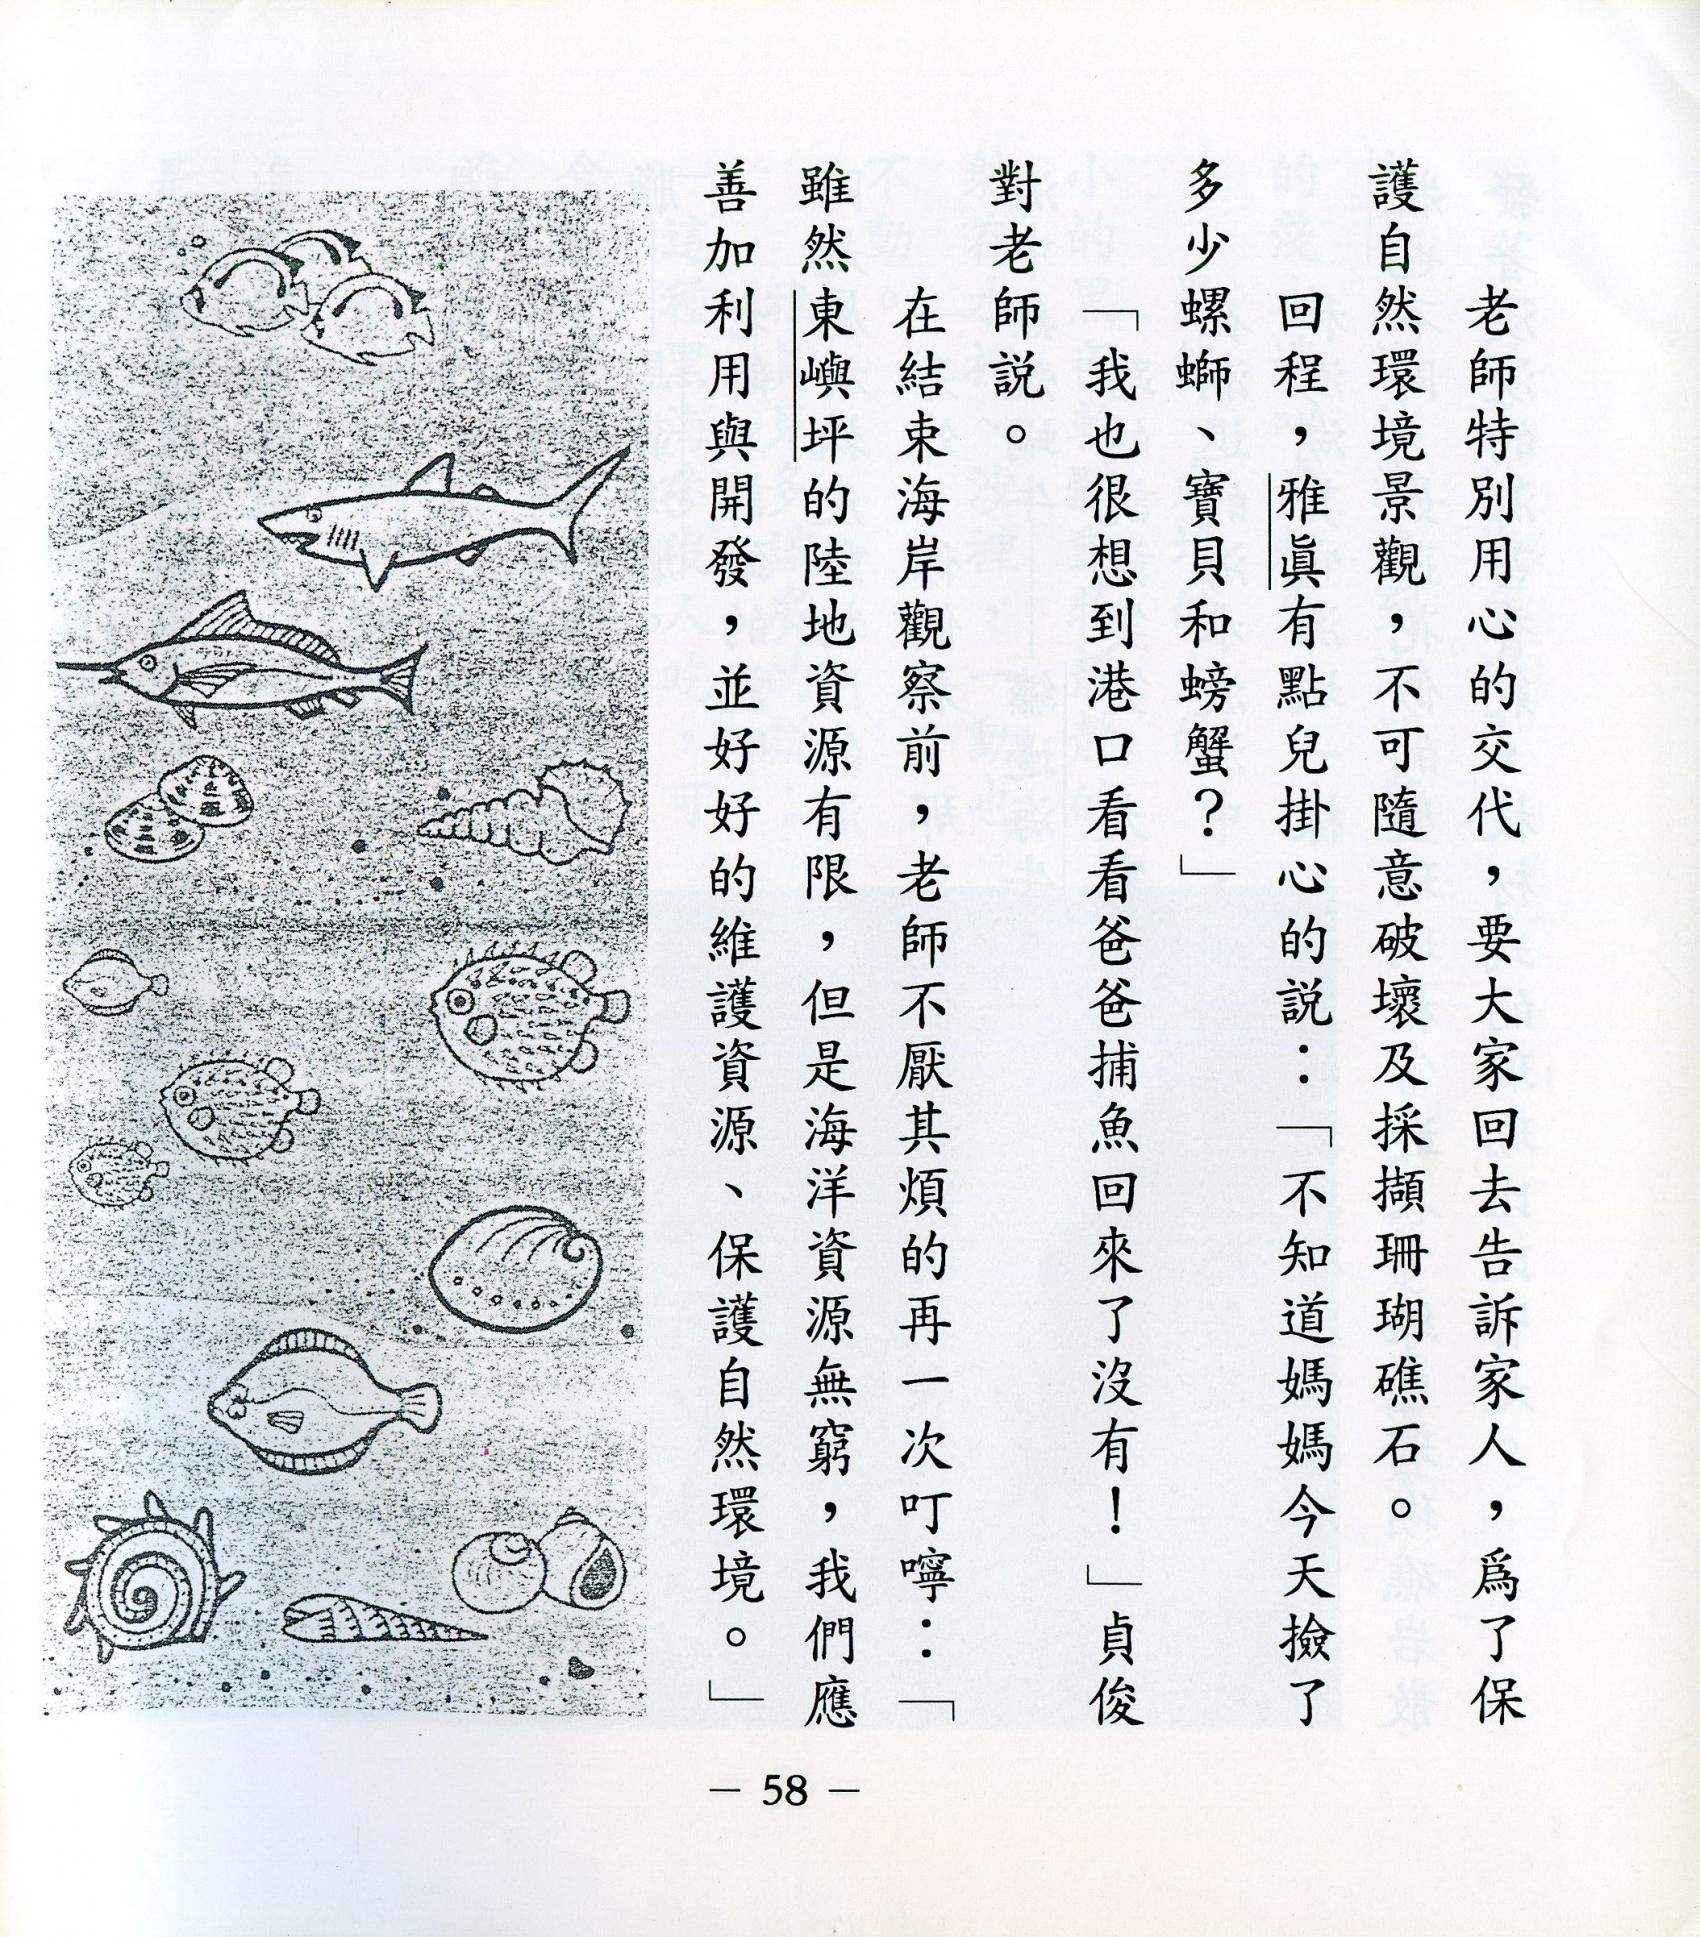 老師特別用心的交代，要大家回去告訴家人，爲了保
護自然環境景觀，不可隨意破壞及採擷珊瑚礁石。
回程，雅眞有點兒掛心的説：「不知道媽媽今天撿了
多少螺螄、寶貝和螃蟹？」
「我也很想到港口看看爸爸捕魚回來了沒有！」貞俊
對老師説。
在結束海岸觀察前，老師不厭其煩的再一次叮嚀：「
雖然東嶼坪的陸地資源有限，但是海洋資源無窮，我們應
善加利用與開發，並好好的維護資源、保護自然環境。」
— 58 —